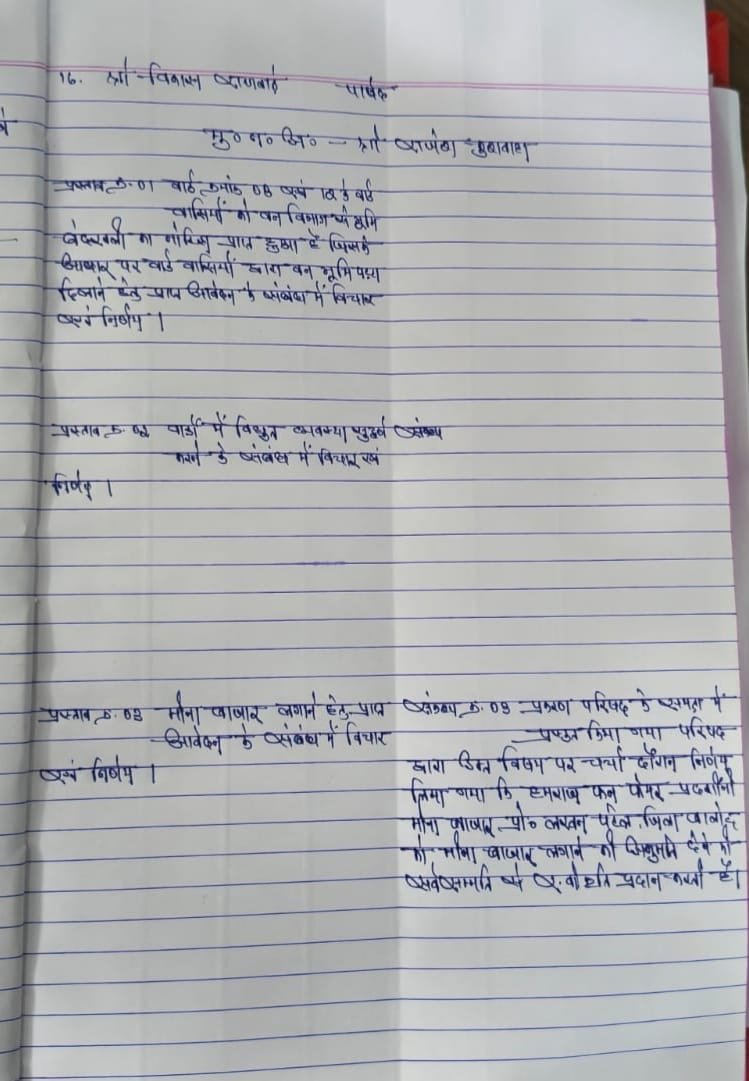 16. श्री विकास पार्षद
मु० न० अ० - श्री राजेश
प्रस्ताव क्र. 01 वार्ड क्रमांक 08 एवं 12 के वार्ड
वासियों को वन विभाग से भूमि
बेदखली का नोटिस प्राप्त हुआ है जिसके
आधार पर वार्ड वासियों द्वारा वन भूमि पट्टा
दिलाने हेतु प्राप्त आवेदन के संबंध में विचार
एवं निर्णय ।
प्रस्ताव क्र. 02 वार्डों में विद्युत व्यवस्था संकल्प
करने के संबंध में विचार एवं
निर्णय ।
प्रस्ताव क्र. 03 मीना बाजार लगाने हेतु प्राप्त
आवेदन के संबंध में विचार
एवं निर्णय ।
संकल्प क्र. 03 प्रकरण परिषद के समक्ष में
प्रस्तुत किया गया परिषद
द्वारा उक्त विषय पर चर्चा दौरान निर्णय
लिया गया कि हमराज फन फेयर प्रदर्शनी
मीना बाजार प्रो० लखन पटेल जिला बालोद
को मीना बाजार लगाने की अनुमति देने की
सर्वसम्मति से स्वीकृति प्रदान करती है।